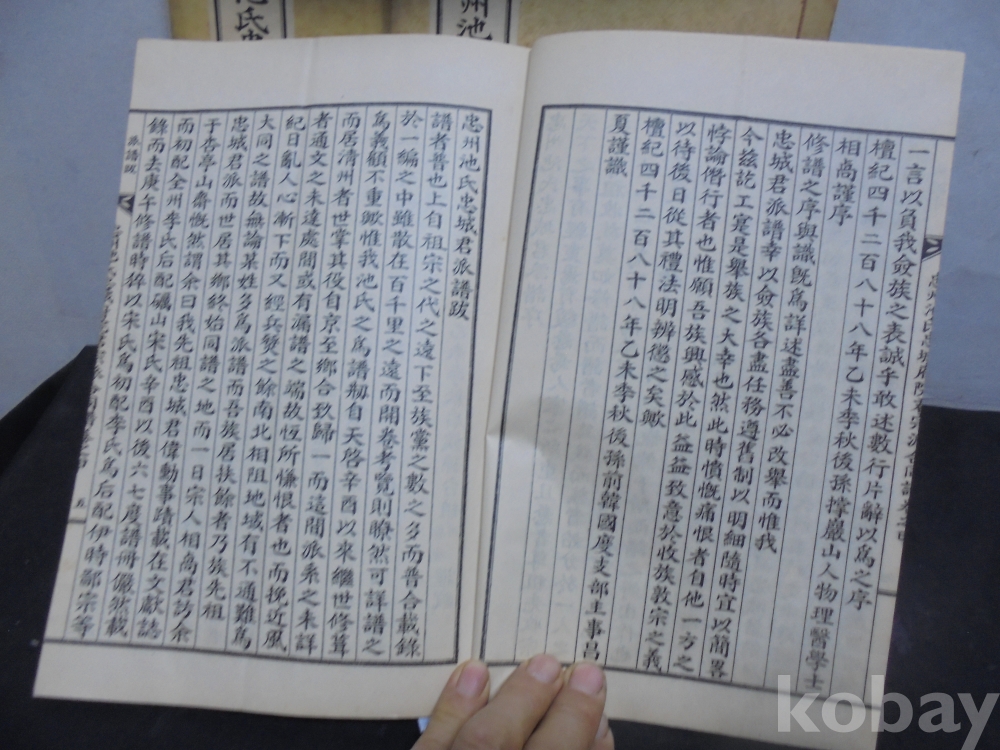 一言以負我僉族之表誠乎敢述數行片解以爲之序
檀紀四千二百八十八年乙未季秋後孫撐巖山人物理醫學士
相卨謹序
修譜之序與識旣爲詳述盡善不必改擧而惟我
忠城君派譜幸以僉族各盡任務遵舊制以明細隨時宜以簡畧
今玆訖工寔是擧族之大幸也然此時憤慨痛恨者自他一方之
悖論僭行者也惟願吾族興感於此益益致意於收族敦宗之義
以待後日從其禮法明辨懲之矣歟
檀紀四千二百八十八年乙未季秋後孫前韓國度支部主事昌
夏謹識
忠州池氏忠城君派譜跋
譜者普也上自祖宗之代之遠下至族黨之數之多而普合載錄
於一編之中雖散在百千里之遠而開卷考覽則瞭然可詳譜之
爲義顧不重歟惟我池氏之爲譜刱自天啓辛酉以來繼世修葺
而居淸州者世掌其役自京至鄕合致歸一而這間派系之未詳
者通文之未達處間或有漏譜之端故恆所慊恨者也而挽近風
紀日亂人心漸下而又經兵燹之餘南北相阻地域有不通難爲
大同之譜故無論某姓多爲派譜而吾族居扶餘者乃族先祖
忠城君派而世居其鄕終始同譜之地而一日宗人相卨君訪余
于杏亭山齋慨然謂余曰我先祖忠城君偉勳事蹟載在文獻誌
而初配全州李氏后配礪山宋氏辛酉以後六七度譜冊儼然載
錄而去庚午修譜時猝以宋氏爲初配李氏爲后配伊時鄙宗等
派譜跋
五
州池
kobay